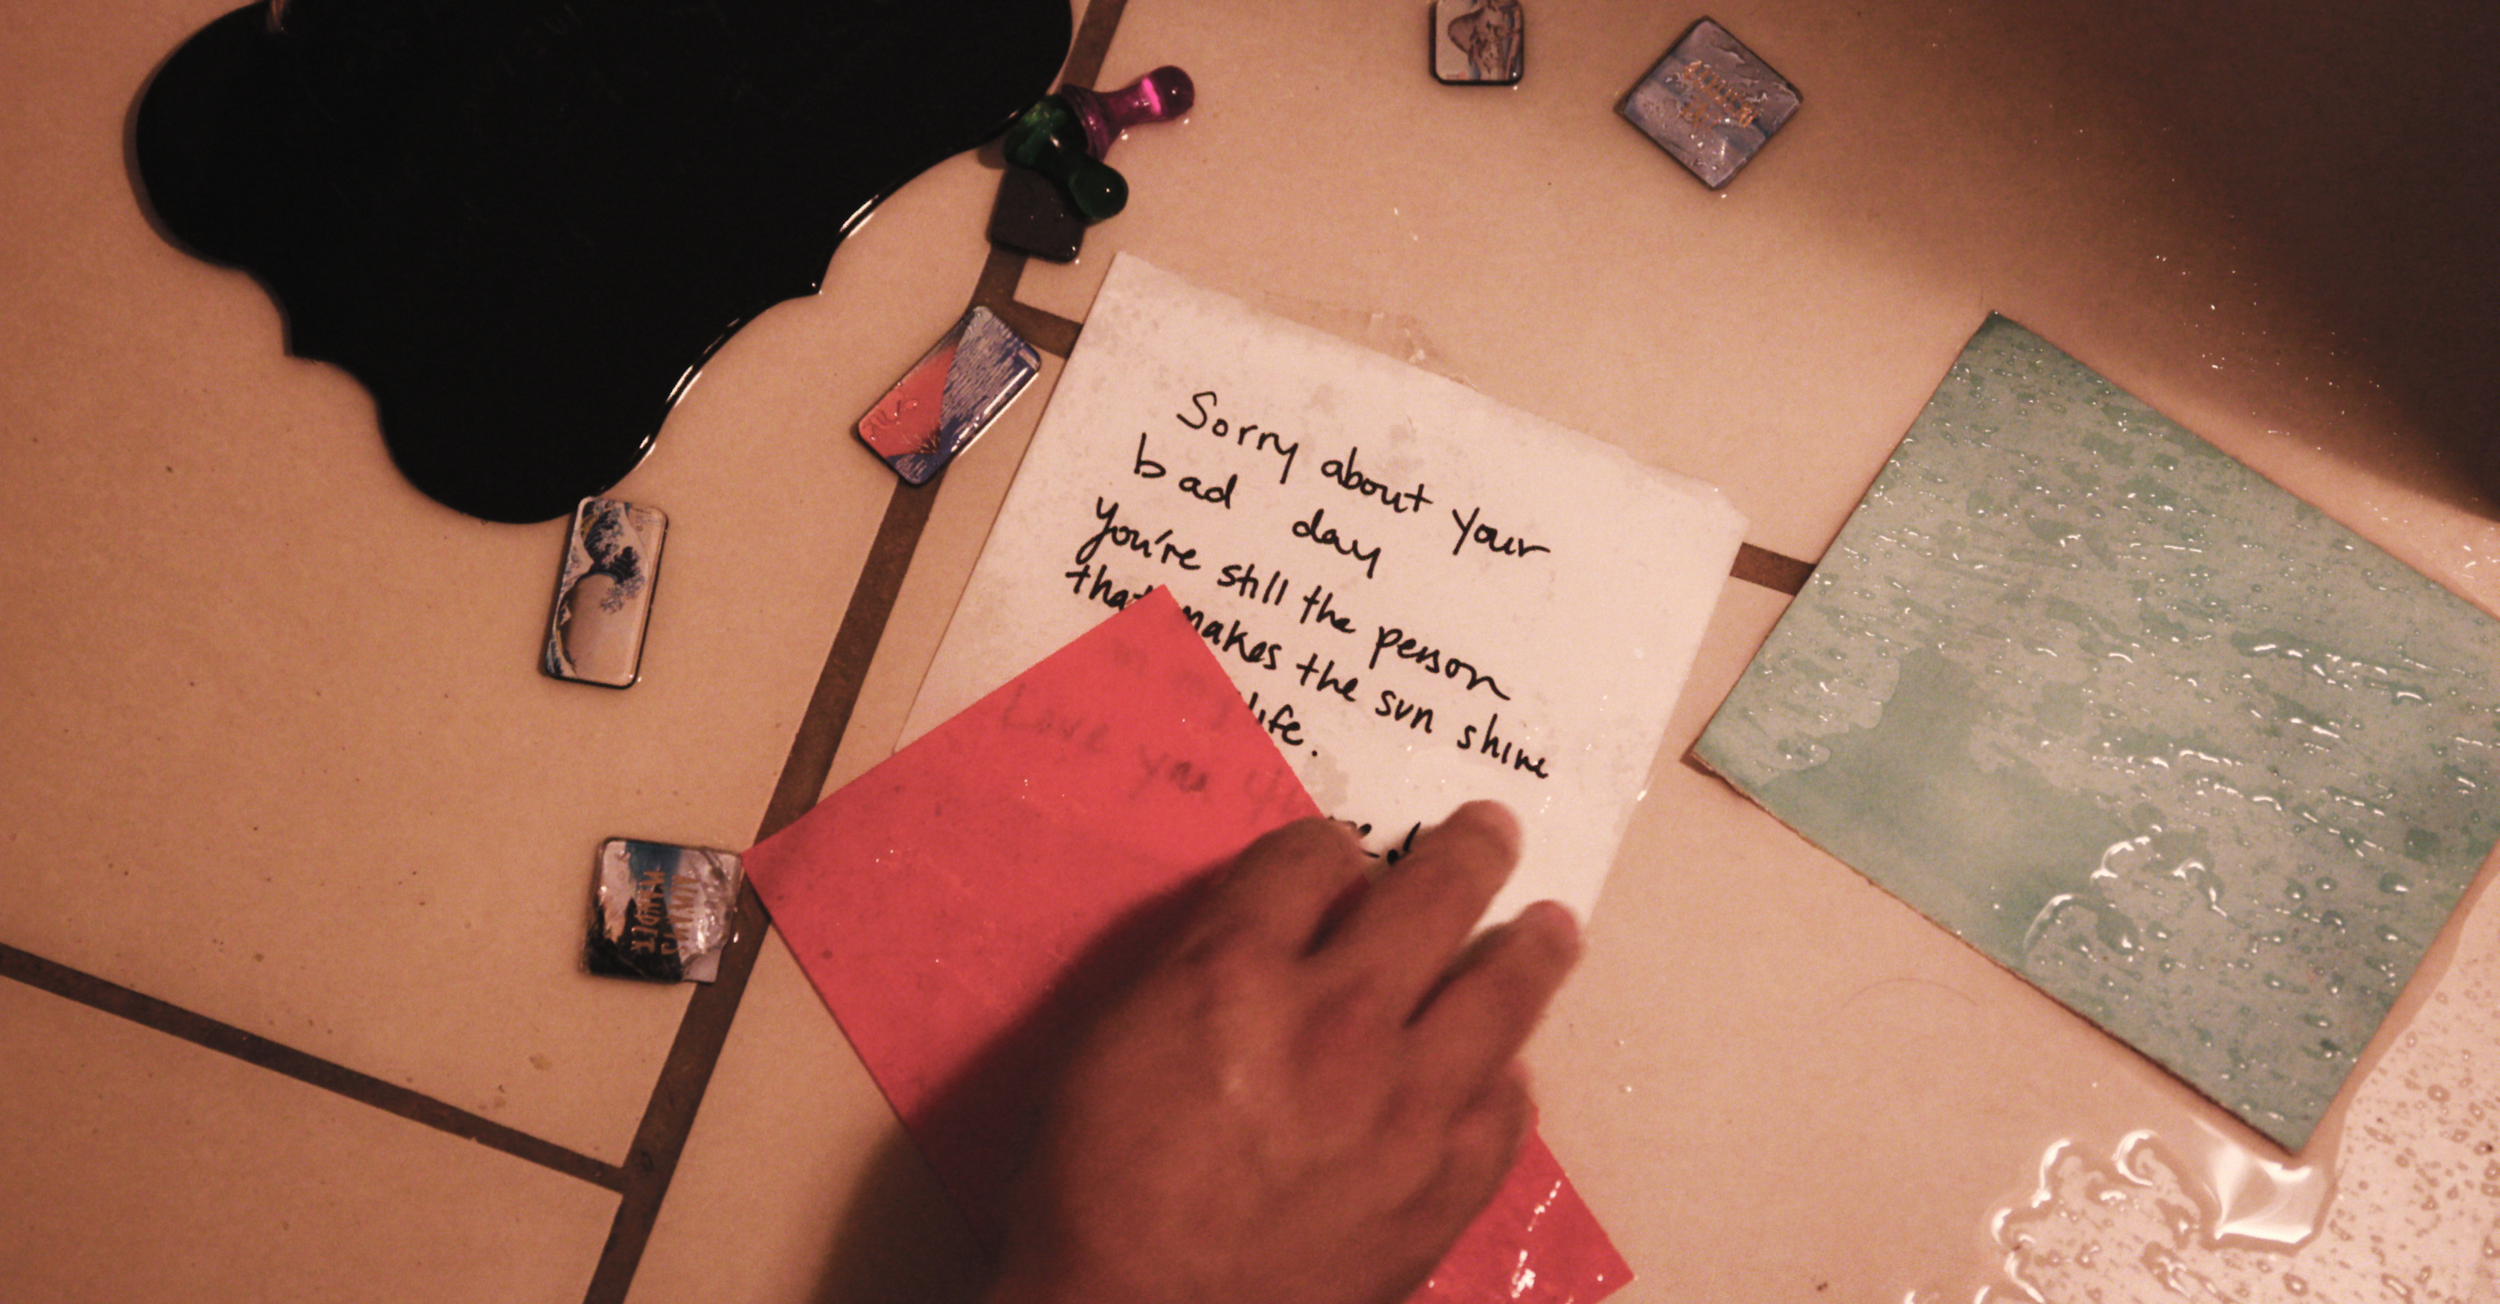 Sorry about your
bad day
you're still the person
that makes the sun shine
in my life.
Love you